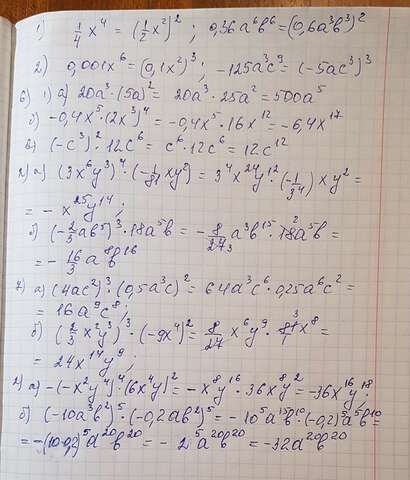 1) 1/4 x⁴ = (1/2 x²)² ; 0,36a⁶b⁶ = (0,6a³b³)²
2) 0,001x⁶ = (0,1x²)³ ; -125a³c⁹ = (-5ac³)³
6) 1) а) 20a³·(5a)² = 20a³·25a² = 500a⁵
б) -0,4x⁵·(2x³)⁴ = -0,4x⁵·16x¹² = -6,4x¹⁷
в) (-c³)²·12c⁶ = c⁶·12c⁶ = 12c¹²
2) а) (3x⁶y³)⁴·(-1/81 xy²) = 3⁴x²⁴y¹²·(-1/3⁴)xy² =
= -x²⁵y¹⁴ ;
б) (-2/3 ab⁵)³·18a⁵b = -8/27₃ a³b¹⁵·18²a⁵b =
= -16/3 a⁸b¹⁶
7) а) (4ac²)³·(0,5a³c)² = 64a³c⁶·0,25a⁶c² =
= 16a⁹c⁸ ;
б) (2/3 x²y³)³·(-9x⁴)² = 8/27 x⁶y⁹·81³x⁸ =
= 24x¹⁴y⁹ ;
2) а) -(-x²y⁴)⁴·(6x⁴y)² = -x⁸y¹⁶·36x⁸y² = -36x¹⁶y¹⁸ ;
б) (-10a³b²)⁵·(-0,2ab²)⁵ = -10⁵a¹⁵b¹⁰·(-0,2)⁵a⁵b¹⁰ =
= -(10·0,2)⁵a²⁰b²⁰ = -2⁵a²⁰b²⁰ = -32a²⁰b²⁰